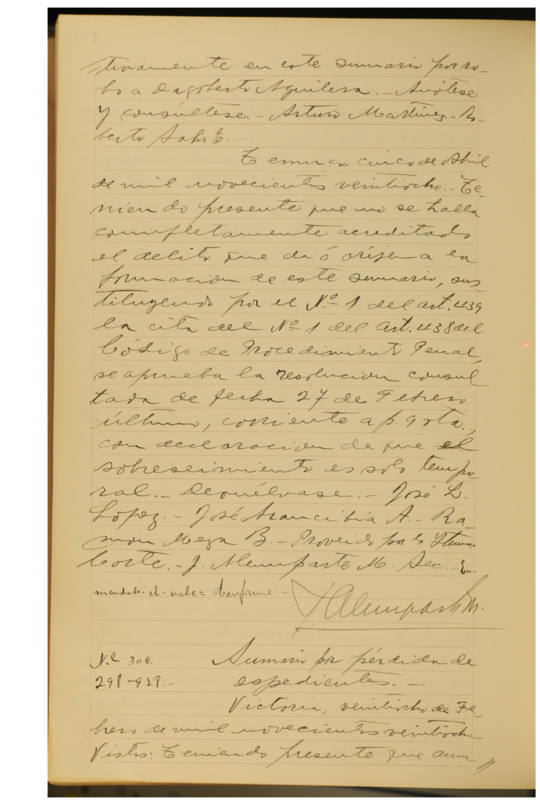 tivamente en este sumario por ro-
bo a Dagoberto Aguilera.- Anótese
y consúltese.- Arturo Martinez.- Ro-
berto
Temuco cinco de Abril
de mil novecientos veintiocho.- Te-
niendo presente que no se halla
completamente acreditado
el delito que dió oríjen a la
formacion de este sumario, sus
tituyendo por el Nº 1 del art. 439
la cita del Nº 1 del art. 438 del
Código de Procedimiento Penal,
se aprueba la resolucion consul
tada de fecha 27 de Febrero
último, corriente a p. 9 vta.,
con declaracion de que el
sobreseimiento es solo tempo-
ral.- Devuélvase.- José L.
López.- José Arancibia A.- Ra-
mon Meza B.- Proveido por la Iltma
Corte.- J. Alemparte M. Sec.- En-
mendado-el-vale= Conforme.-
J. Alemparte M.
Nº 308. Sumario por pérdida de
298-928.- espedientes.-
Victoria, veintiocho de Fe
brero de mil novecientos veintiocho.-
Vistos: Teniendo presente que aun